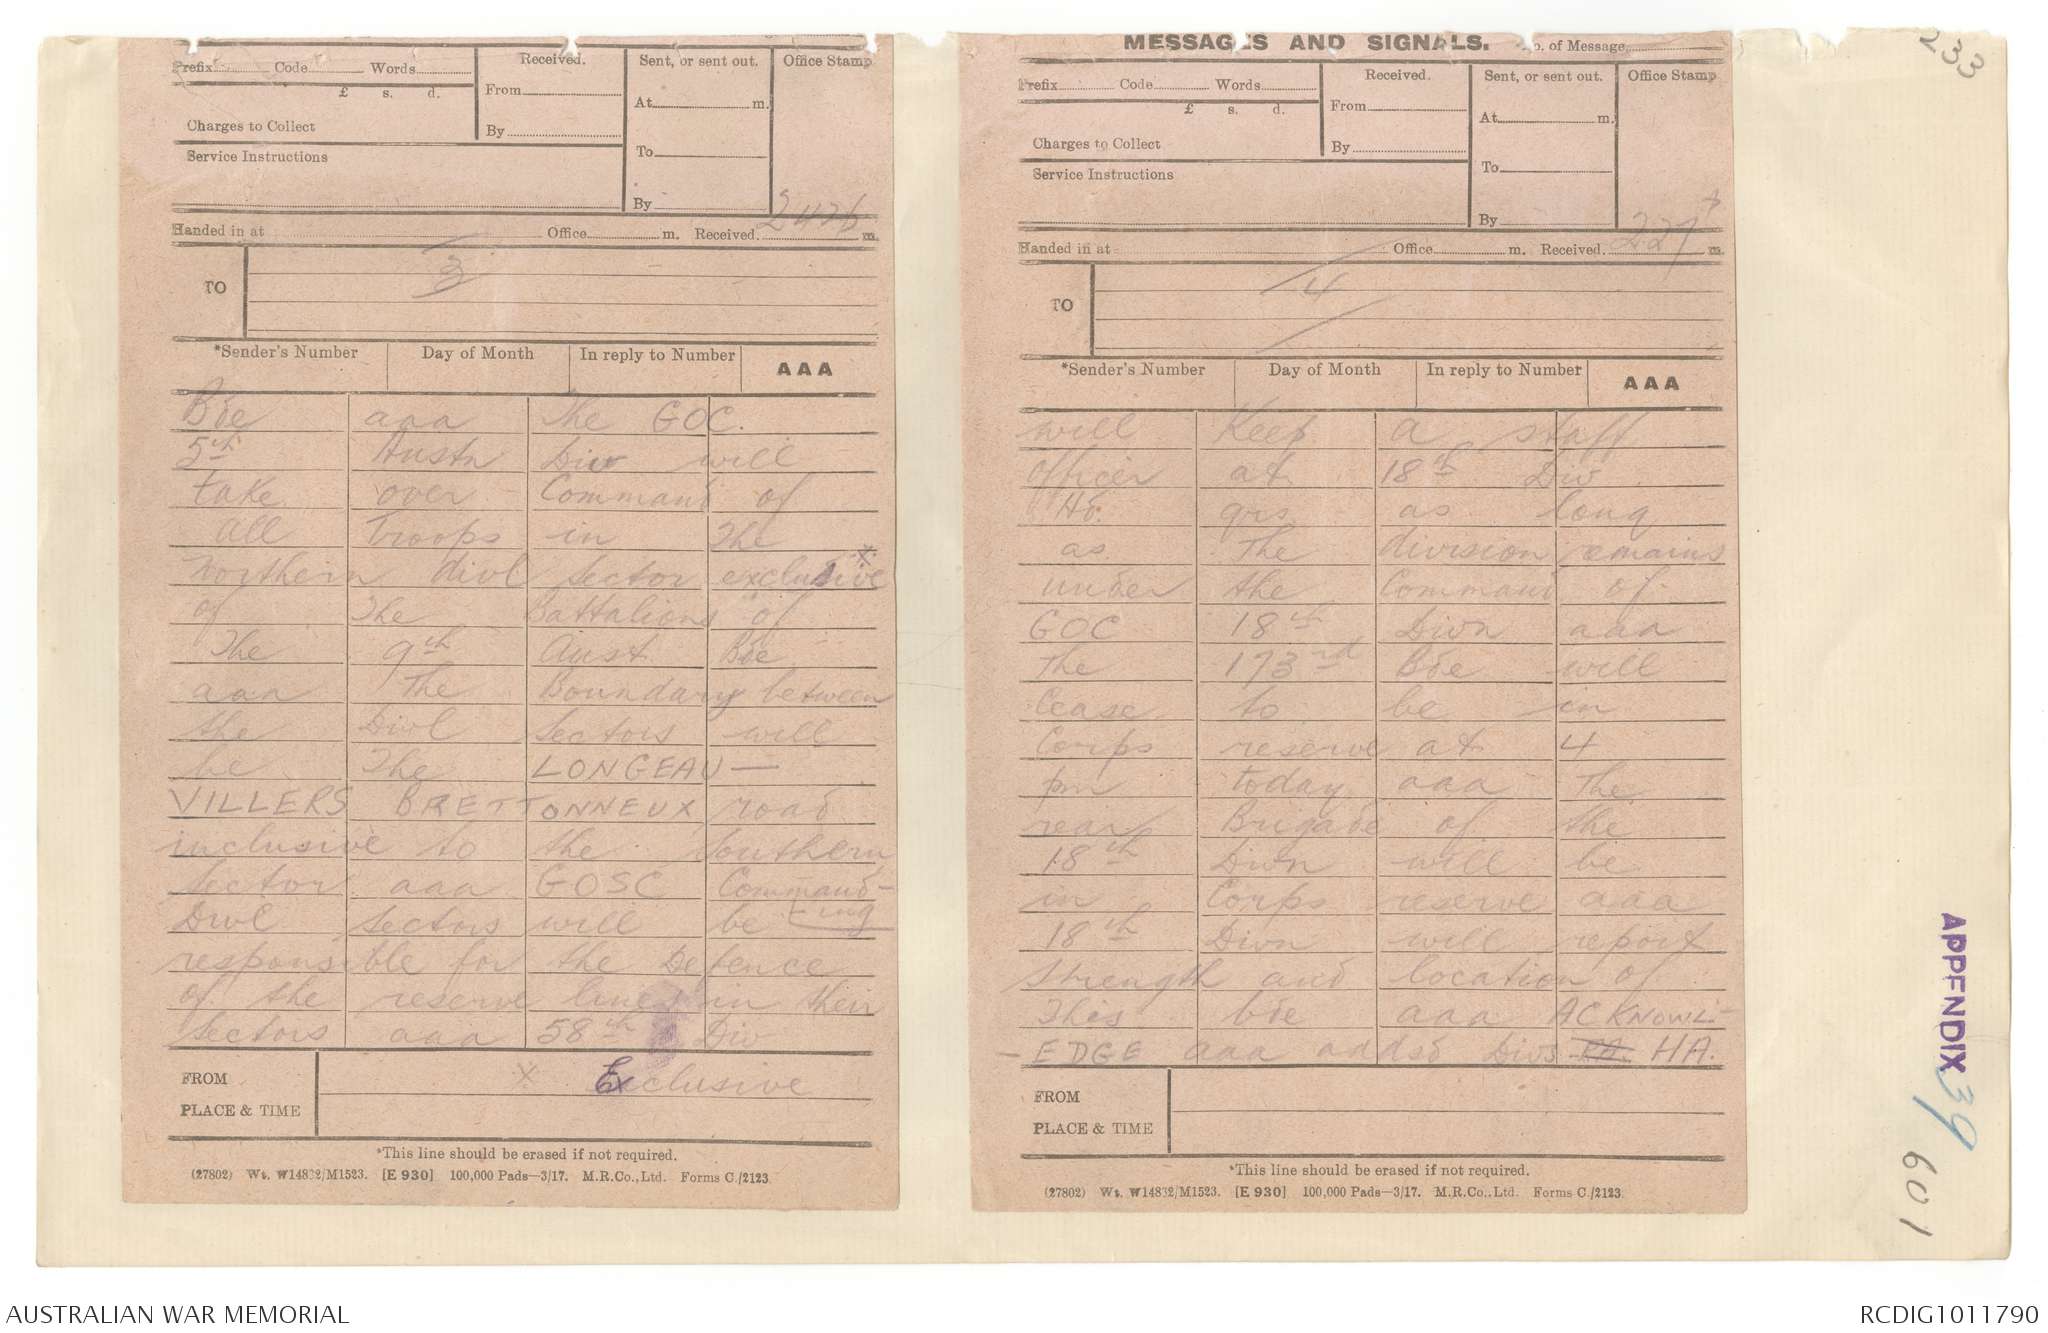 Prefix Code Words
£ s. d.
Charges to Collect
Service Instructions
Received.
From
By
Sent, or sent out.
At m.
To
By
Office Stamp
Handed in at Office m. Received. m.
TO
3
*Sender's Number Day of Month In reply to Number AAA
Bde aaa The GOC.
5th Austn Div will
take over Command of
All Troops in The
Northern divl Sector exclusive x
of The Battalions of
The 9th Aust Bde
aaa The Boundary between
the Divl Sectors will
be The LONGEAU —
VILLERS BRETTONNEUX road
inclusive to the Southern
Sector aaa GOSC Command-
Divl Sectors will be -ing
responsible for the Defence
of the reserve lines in their
Sectors aaa 58th Div
FROM
PLACE & TIME
x Exclusive
*This line should be erased if not required.
(27802) Wt. W14832/M1523. [E 930] 100,000 Pads—3/17. M.R.Co., Ltd. Forms C./2123.
MESSAGES AND SIGNALS. No. of Message
Prefix Code Words
£ s. d.
Charges to Collect
Service Instructions
Received.
From
By
Sent, or sent out.
At m.
To
By
Office Stamp
Handed in at Office m. Received. m.
TO
4
*Sender's Number Day of Month In reply to Number AAA
will Keep a staff
officer at 18th Div
Hd. qrs as long
as The division remains
under the Command of
GOC 18th Divn aaa
The 173rd Bde will
Cease to be in
Corps reserve at 4
pm today aaa The
rear Brigade of the
18th Divn will be
in Corps reserve aaa
18th Divn will report
Strength and location of
This bde aaa ACKNOWL-
- EDGE aaa addsd Divs HA.
FROM
PLACE & TIME
*This line should be erased if not required.
(27802) Wt. W14832/M1523. [E 930] 100,000 Pads—3/17. M.R.Co., Ltd. Forms C./2123.
233
APPENDIX 39
601
AUSTRALIAN WAR MEMORIAL
RCDIG1011790